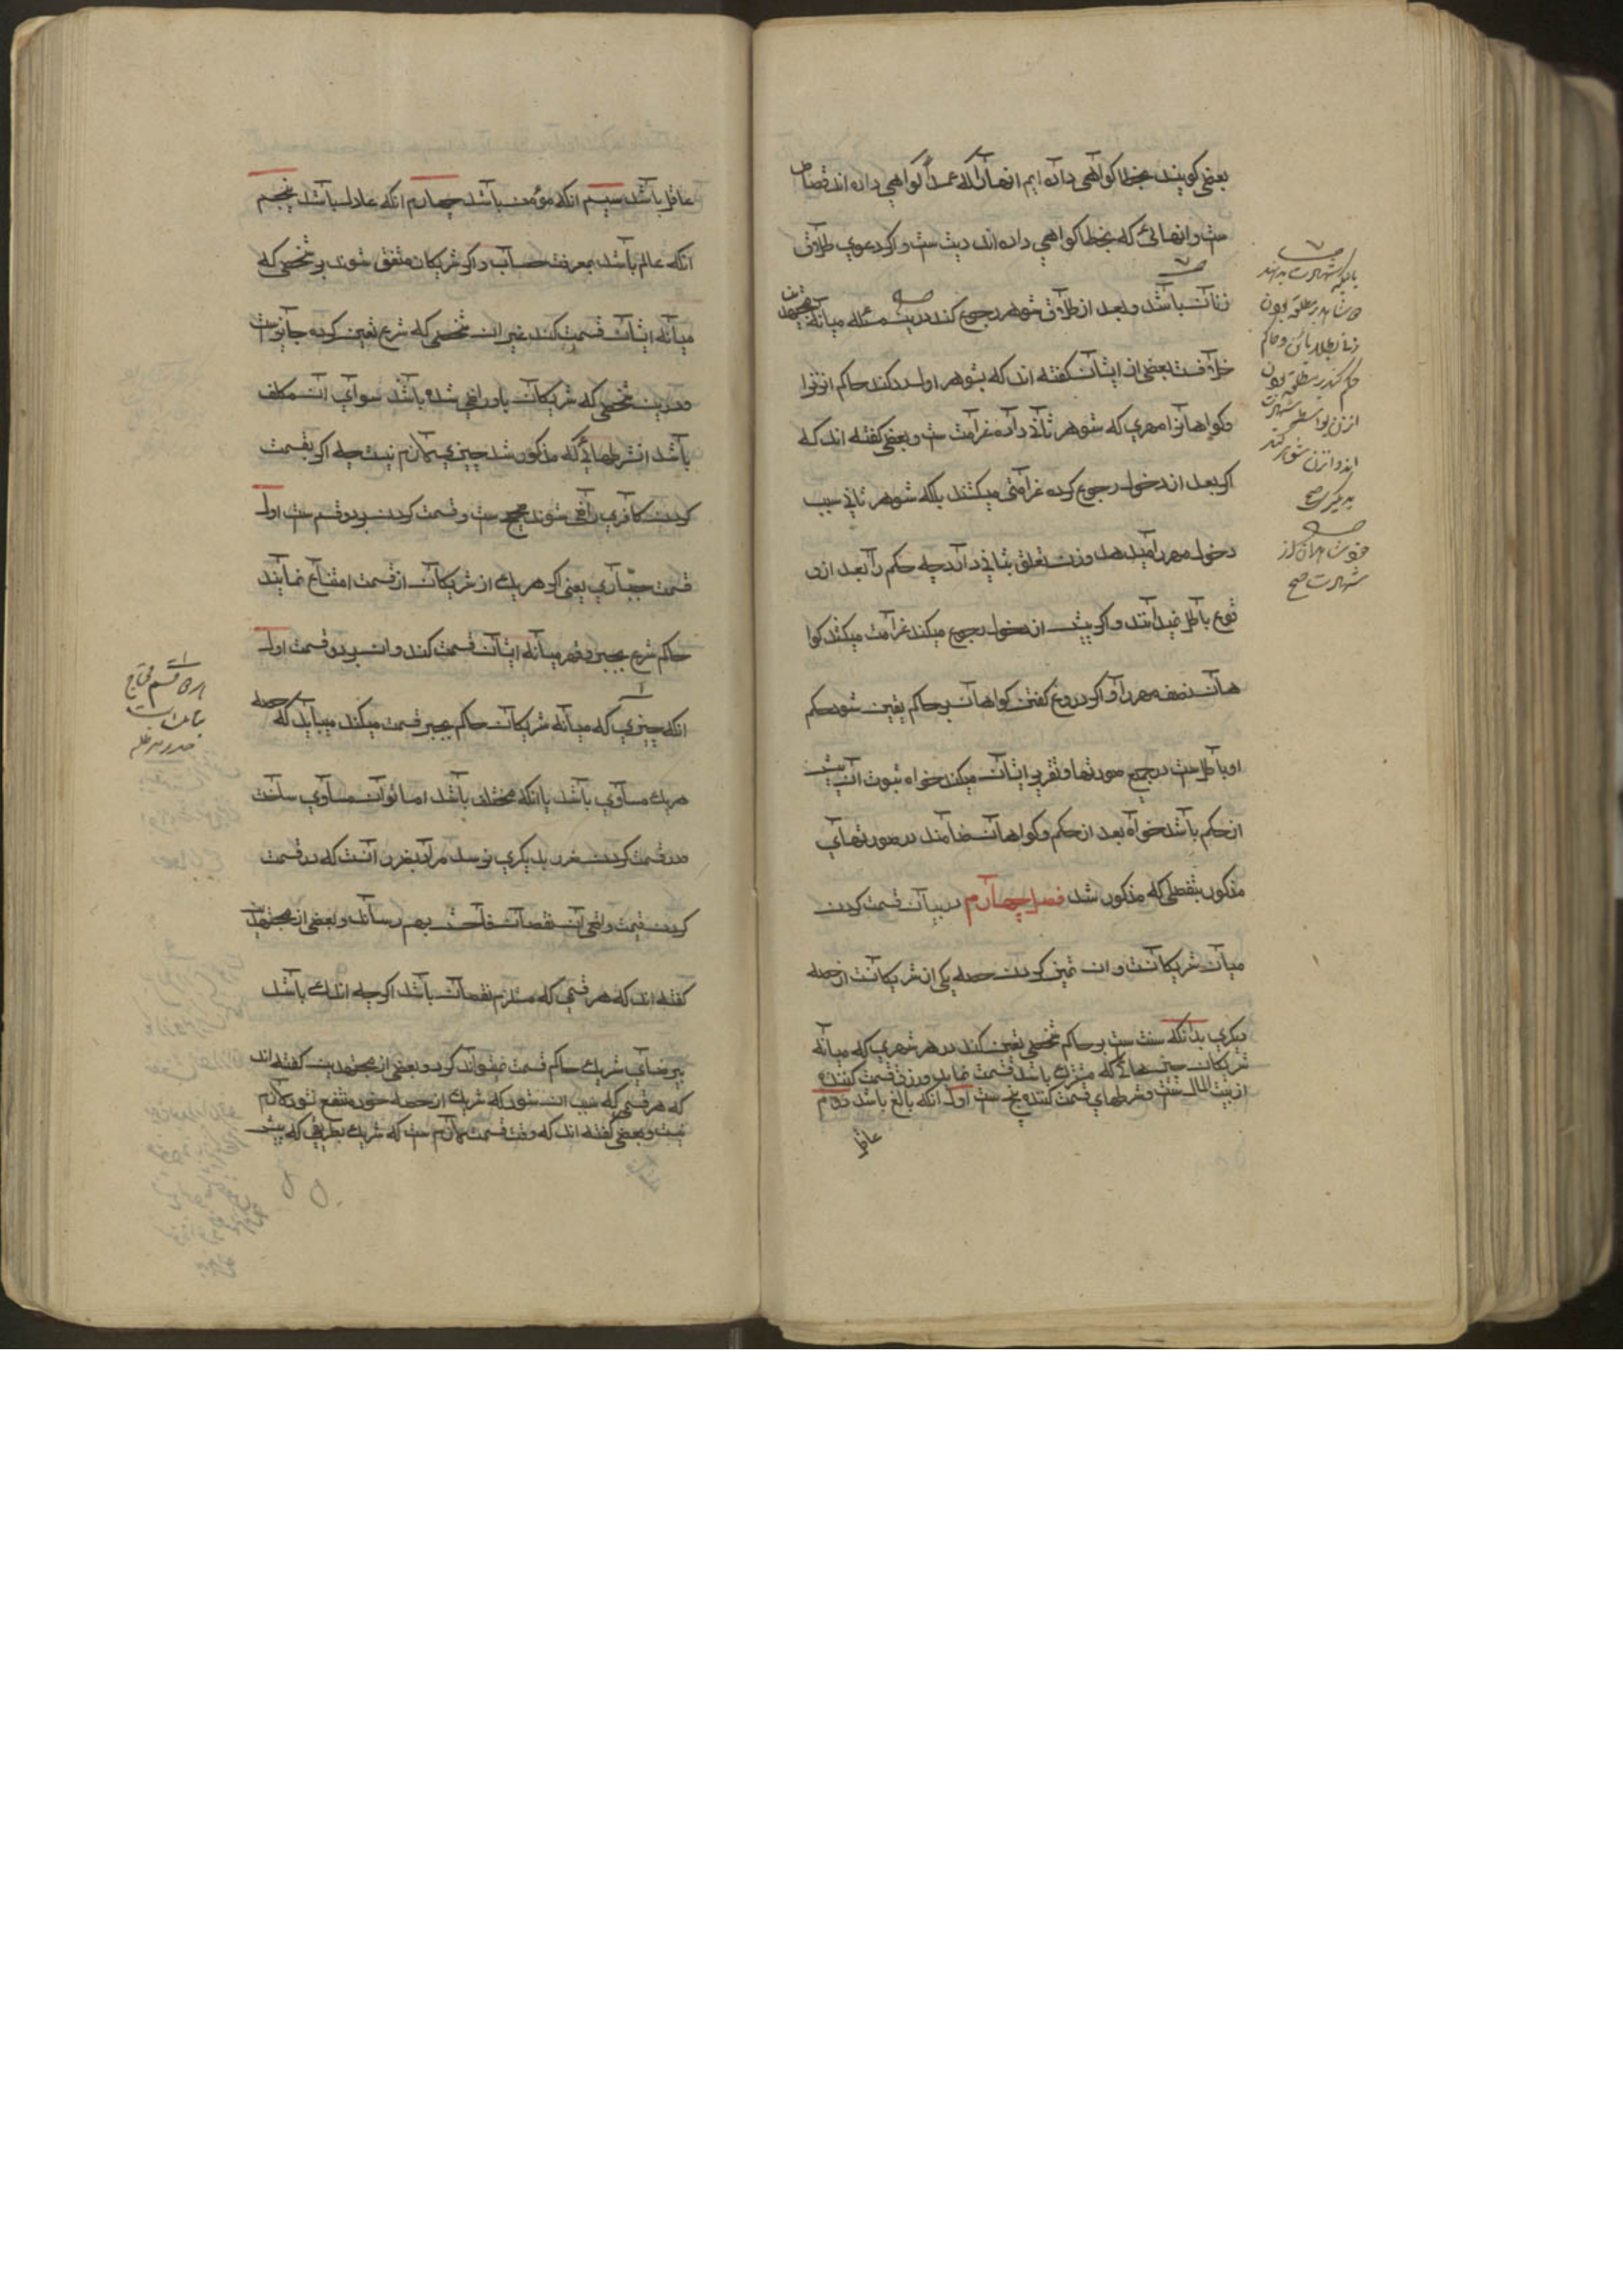 بعضی کویند بخطا کواهی داده ایم انهارا که عمداً کواهی داده اند قصاص
ست و انهائی که بخطا کواهی داده اند دیت ست و اکر دعوی طلاق
زنان باشد و بعد از طلاق شوهر رجوع کند درین مسئله میانه مجتهدین
خلافست بعضی از ایشان کفته اند که بشوهر اول رد کند حاکم انزنرا
و کواهانرا مهری که شوهر ثانی داده غرامت ست و بعضی کفته اند که
اکر بعد از دخول رجوع کرده غرامتی میکشند بلکه شوهر ثانی سبب
دخول مهر را میدهد و زن تعلق بثانی دارد چه حکم را بعد از و
قوع باطل نمیدانند و اکر پیش از دخول رجوع میکند غرامت میکشند کوا
هان نصف مهر را و اکر دروغ کفتن کواهان بر حاکم یقین شود حکم
او باطل ست در جمیع صورتها و تقریر ایشان میکند خواه ثبوت ان پیش
از حکم باشد خواه بعد از حکم و کواهان ضامند در صورتهای
مذکور بتفصلی که مذکور شد فصل چهارم در بیان قسمت کردن
میان شریکانست و ان تمیز کردن حصه یکی از شریکانست از حصه
دیکری بدانکه سنت ست بر حاکم شخصی تعین کند در هر شهری که میانه
شریکان چیزهائی که مشترک باشد قسمت نماید و رزق قسمت کننده
از بیت المال ست و شرطهای قسمت کننده پنج ست اول انکه بالغ باشد دوم
عاقل
شهادت صح
عاقل باشد سیم انکه مؤمن باشد چهارم انکه عادل باشد پنجم
انکه عالم باشد بمعرفت حساب و اکر شریکان متفق شوند بر شخصی که
میانه ایشان قسمت کند غیر ان شخصی که شرع تعین کرده جایز ست
و درین شخصی که شریکان باو راضی شده باشد سوای ان مکلف
باشد از شرطهائی که مذکور شد چیزی لازم نیست چه اکر بقسمت
کردن کافری راضی شوند صحیح ست و قسمت کردن بر دو قسم ست اول
قسمت جباری یعنی اکر هر یک از شریکان از قسمت امتناع نمایند
حاکم شرع بجبر و قهر میانه ایشان قسمت کند و ان بر دو قسمت اول
انکه چیزی که میانه شریکان حاکم بجبر قسمت میکند میباید که حصه
هریک مساوی باشد یا انکه مختلف باشد اما توان مساوی ساخت
و در قسمت کردن ضرر بدیکری نرسد مراد بضرر انست که در قسمت
کردن قیمت واقعی ان نقصان فاحش بهم رساند و بعضی از مجتهدین
کفته اند که هر قسمی که مستلزم نقصان باشد اکرچه اندک باشد
بیرضای شریک حاکم قسمت نمیتواند کرد و بعضی از مجتهدین کفته اند
که هر قسمی که سبب ان شود که شریک از حصه خود منتفع نشود لازم
نیست و بعضی کفته اند که وقت قسمت لازم ست که شریک بطریقی که پیش